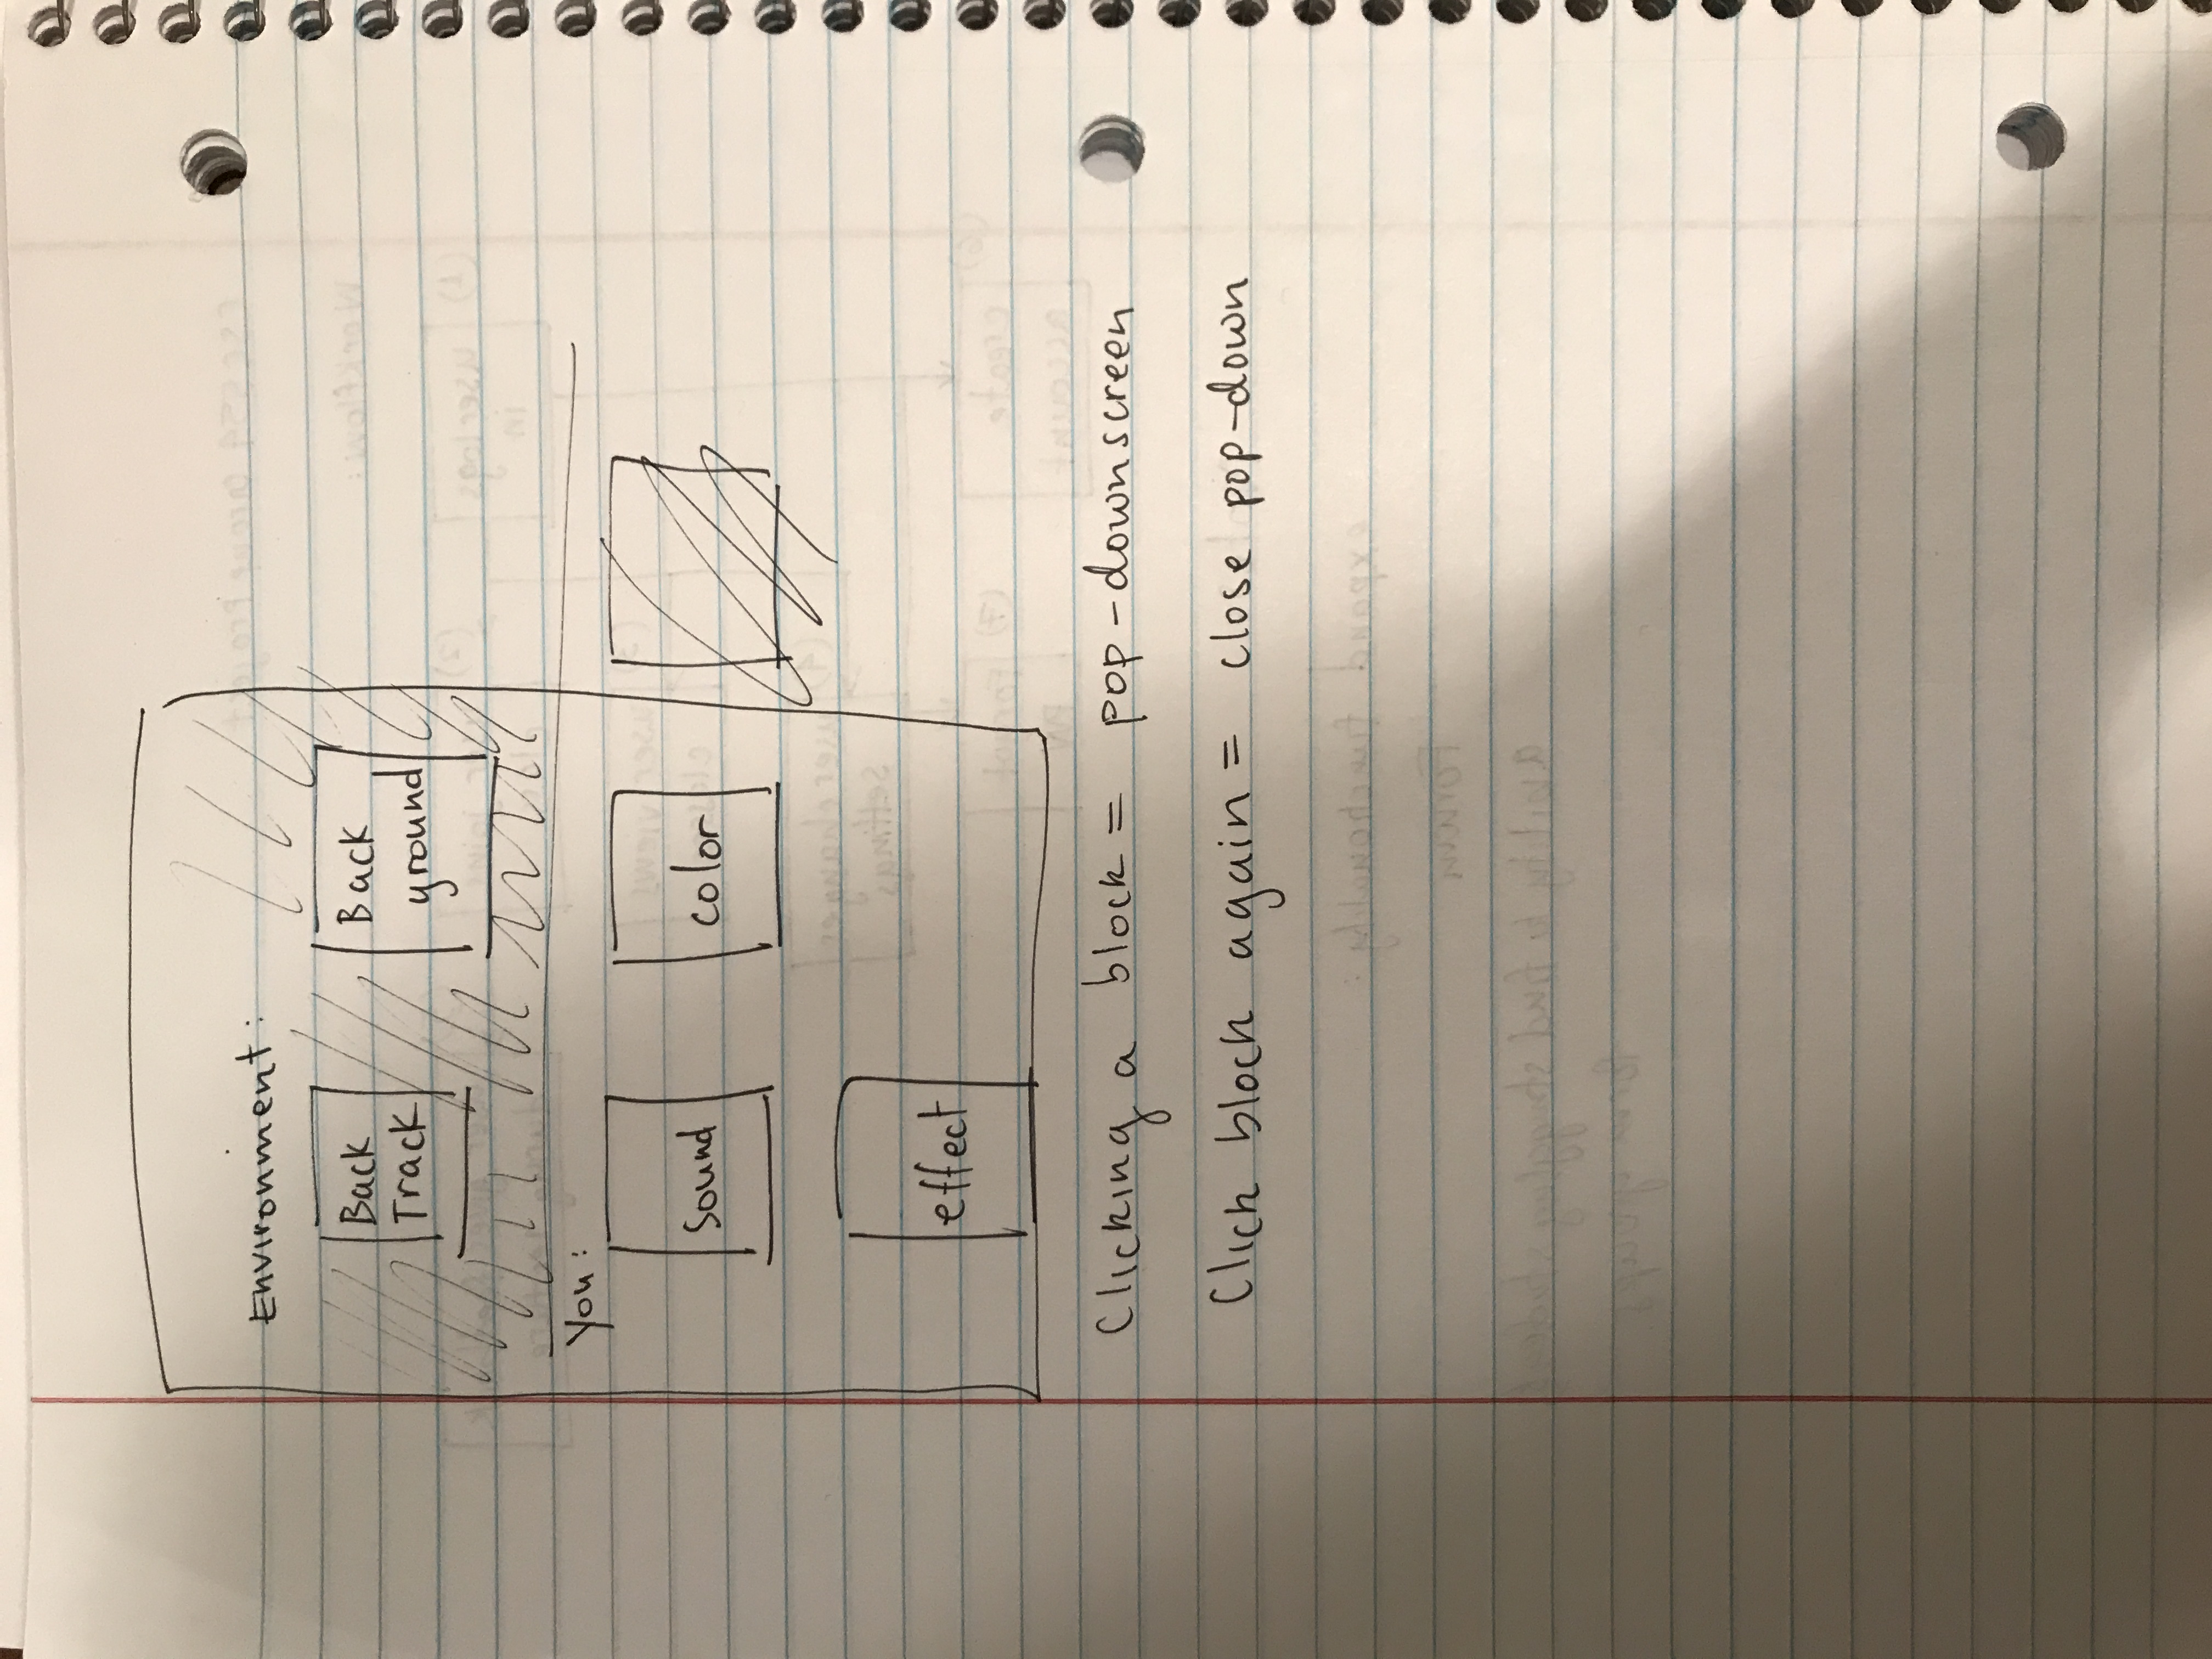 Environment:
Back
Track
Back
ground
You:
sound
color
effect
Clicking a block = pop-down screen
Click block again = close pop-down